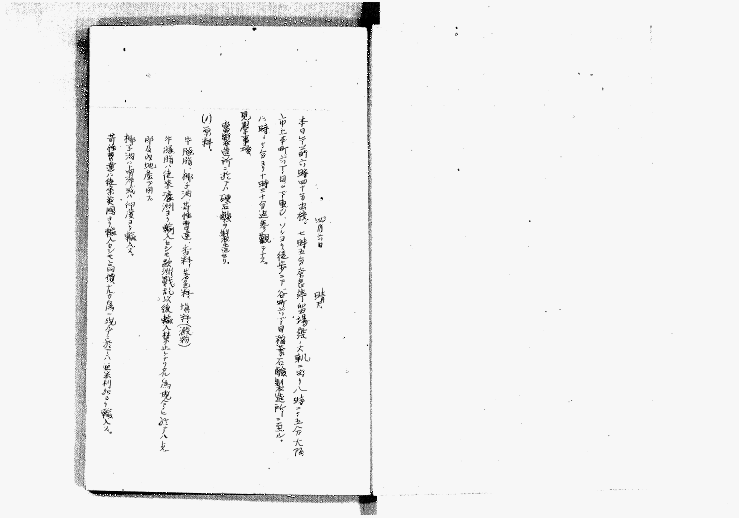 四月六日 晴
本日午前六時四十分出校、七時五分奈良停車場発ノ大軌ニヨリ八時二十五分大阪
上本町六丁目ニ下車シ、ソレヨリ徒歩ニテ谷町六丁目稲葉石鹸製造所ニ至ル。
八時二十分ヨリ十時二十分迄参観ス。
見学事項
当製造所ニ於テハ硬石鹸ヲ製造セリ。
(1) 原料。
牛脂、椰子油、苛性曹達、香料、着色料、填料(澱粉)
牛脂ハ従来濠洲ヨリ輸入セシモ欧洲戦乱以後輸入禁止トナリタル為現今ニ於テハ
即内地産ヲ用フ
椰子油ハ南洋或ハ印度ヨリ輸入ス。
苛性曹達ハ従来英国ヨリ輸入セシモ高価ナル為現今ニ於テハ米利加ヨリ輸入ス。